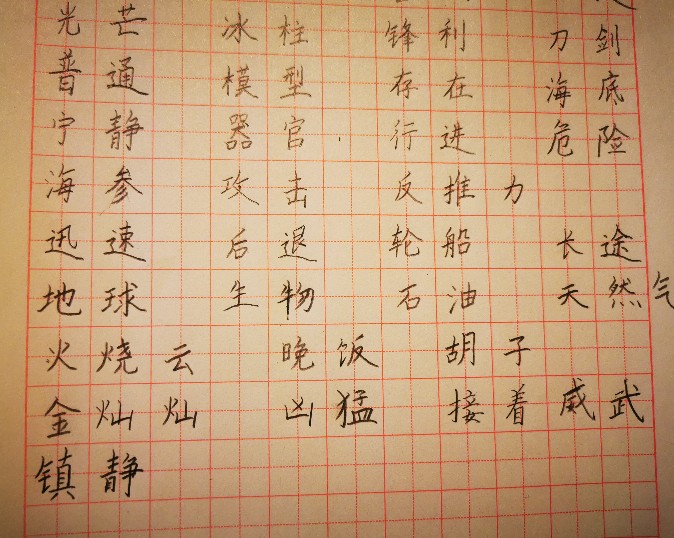 光芒 冰柱 锋利 刀剑
普通 模型 存在 海底
宁静 器官 行进 危险
海参 攻击 反推力
迅速 后退 轮船 长途
地球 生物 石油 天然气
火烧云 晚饭 胡子
金灿灿 凶猛 接着 威武
镇静